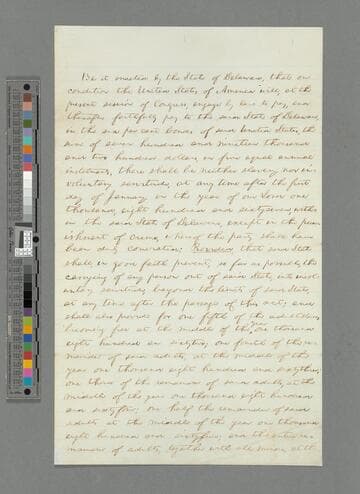 Be it enacted by the State of Delaware, that on
condition the United States of America will, at the
present session of Congress, engage by law to pay, and
thereafter faithfully pay to the said State of Delaware,
in the six per cent bonds of said United States, the
sum of seven hundred and nineteen thousand
and two hundred dollars, in five equal annual
instalments, there shall be neither slavery nor in-
voluntary servitude, at any time after the first
day of January in the year of our Lord one
thousand, eight hundred and sixty-seven, within
in the said State of Delaware, except in the pun-
ishment of crime, whereof the party shall have
been duly convicted: Provided, that said State
shall, in good faith prevent, so far as possible, the
carrying of any person out of said State, into invol-
untary servitude, beyond the limits of said State,
at any time after the passage of this act; and
shall also provide for one fifth of the adult slaves
becoming free at the middle of the year one thousand
eight hundred and sixty-two; one fourth of the re-
mainder of said adults, at the middle of the
year one thousand eight hundred and sixty-three;
one third of the remainder of said adults, at the
middle of the year one thousand eight hundred
and sixty-four; one half the remainder of said
adults at the middle of the year one thousand
eight hundred and sixty-five; and the entire re-
mainder of adults, together with all minors, at the